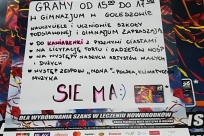 GRAMY OD 15 00 DO 17 30
W GIMNAZJUM W GOLESZOWIE
NAUCZYCIELE I UCZNIOWIE SZKOŁY
PODSTAWOWEJ I GIMNAZJUM ZAPRASZAJĄ
• DO KAWIARENKI Z PYSZNYMI CIASTAMI
• NA LICYTACJĘ TORTU I GADŻETÓW WOŚP
• NA WYSTĘPY NASZYCH ARTYSTÓW MAŁYCH
I DUŻYCH
• WYSTĘP ZESPOŁU „NONA” - POLSKA, KLIMATYCZNA
MUZYKA
SIE MA :)
DLA WYRÓWNANIA SZANS W LECZENIU NOWORODKÓW